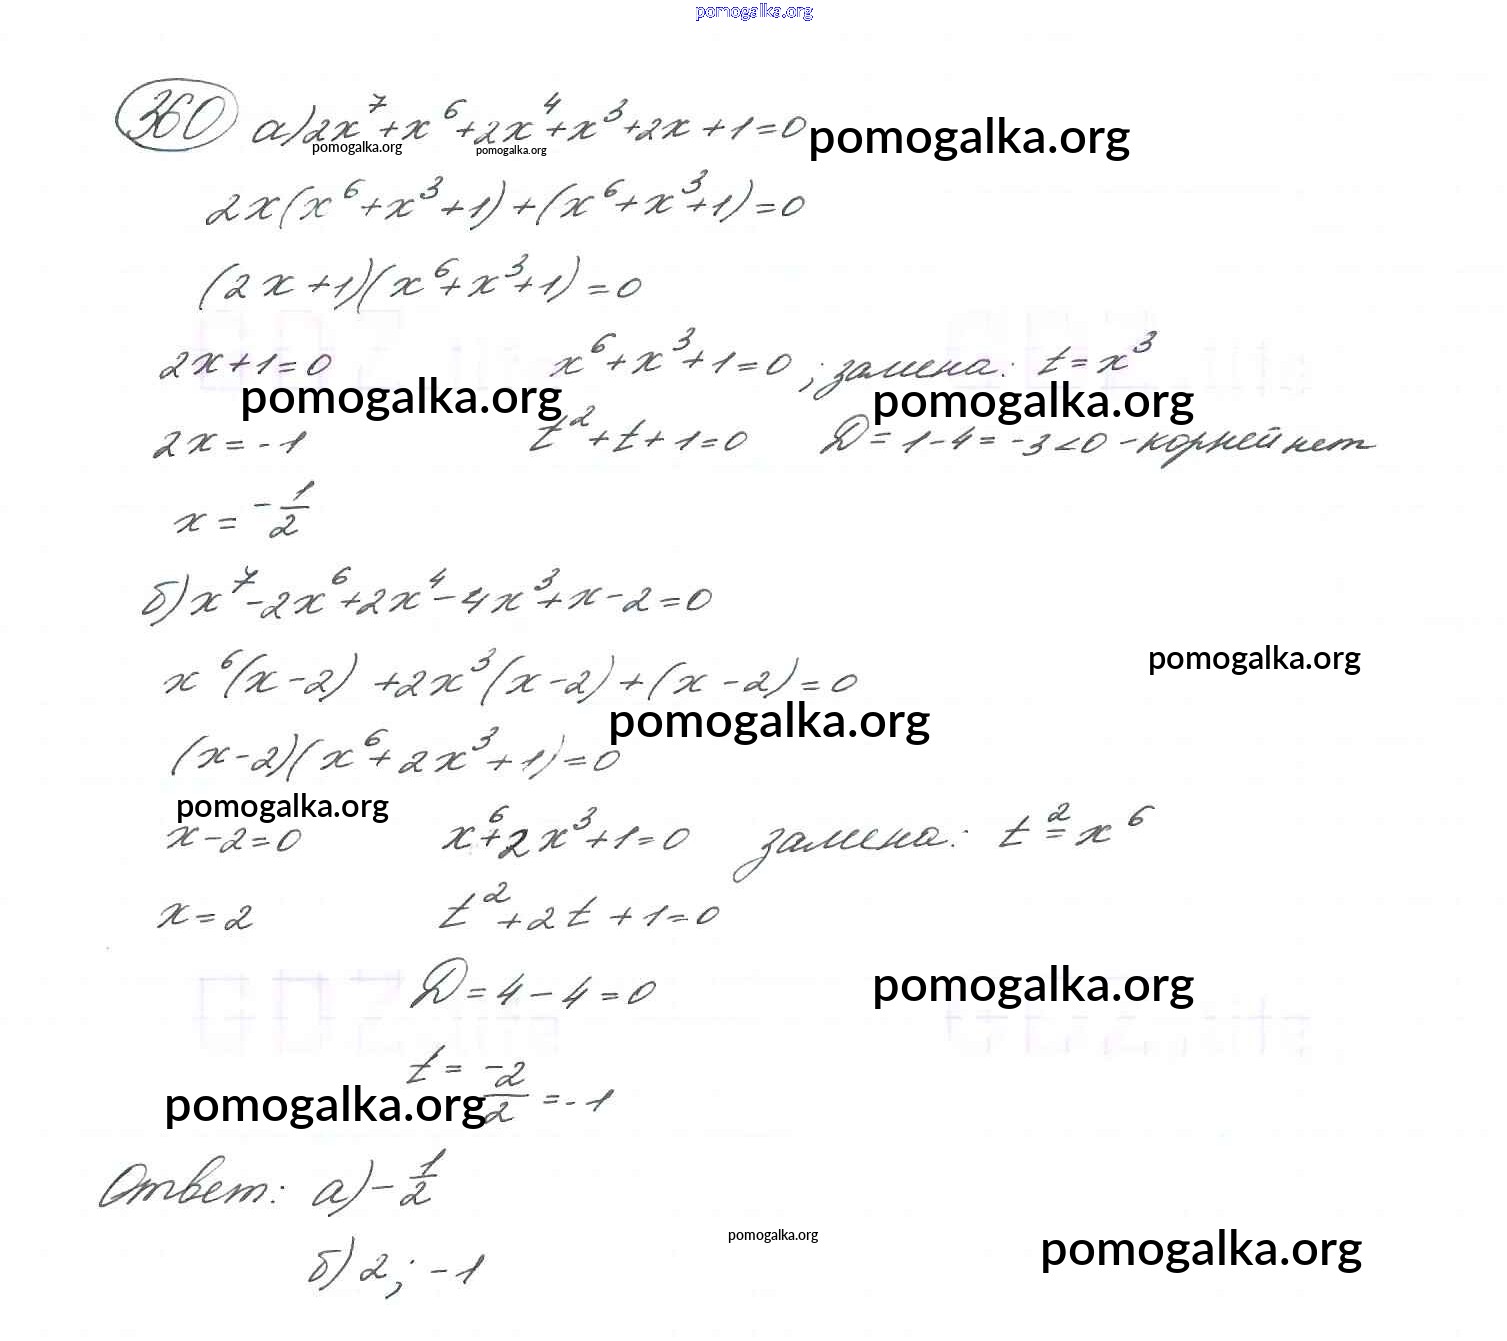 pomogalka.org
360 а) 2x⁷+x⁶+2x⁴+x³+2x+1=0 pomogalka.org
pomogalka.org pomogalka.org
2x(x⁶+x³+1)+(x⁶+x³+1)=0
(2x+1)(x⁶+x³+1)=0
2x+1=0 x⁶+x³+1=0; замена: t=x³
pomogalka.org pomogalka.org
2x=-1 t²+t+1=0 D=1-4=-3<0 - корней нет
x=-1/2
б) x⁷-2x⁶+2x⁴-4x³+x-2=0
pomogalka.org
x⁶(x-2)+2x³(x-2)+(x-2)=0
pomogalka.org
(x-2)(x⁶+2x³+1)=0
pomogalka.org
x-2=0 x⁶+2x³+1=0 замена: t²=x⁶
x=2 t²+2t+1=0
D=4-4=0
pomogalka.org
t=-2/2=-1
pomogalka.org
Ответ: а) -1/2
pomogalka.org pomogalka.org
б) 2; -1